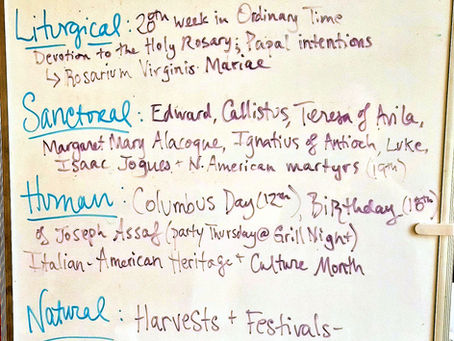 Liturgical: 28th week in Ordinary Time
Devotion to the Holy Rosary; Papal intentions
↳ Rosarium Virginis Mariae
Sanctoral: Edward, Callistus, Teresa of Avila,
Margaret Mary Alacoque, Ignatius of Antioch, Luke,
Isaac Jogues + N. American martyrs (19th)
Human: Columbus Day (12th), Birthday (15th)
of Joseph Assaf (party Thursday @ Grill Night)
Italian-American Heritage + Culture Month
Natural: Harvests + Festivals-